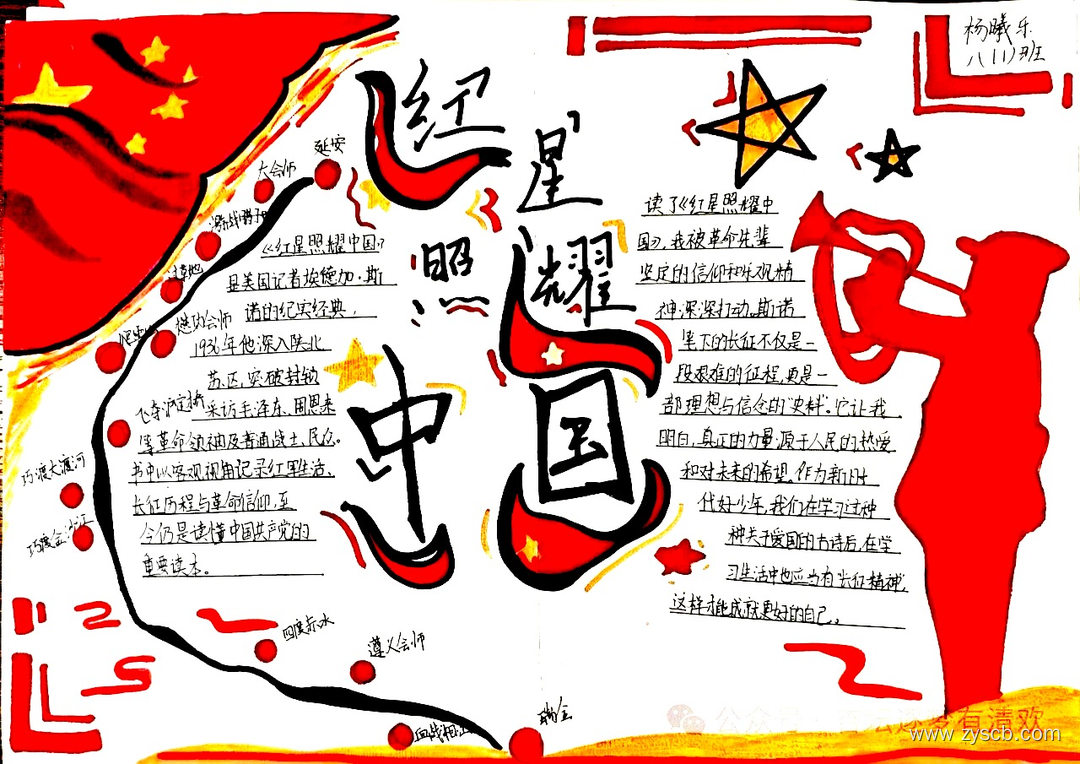 杨曦乐
八(1)班
红星
照耀
中国
延安
大会师
过草地
懋功会师
飞夺泸定桥
巧渡大渡河
巧渡金沙江
四渡赤水
遵义会师
血战湘江
瑞金
《红星照耀中国》
是美国记者埃德加·斯
诺的纪实经典，
1936年他深入陕北
苏区，突破封锁
采访毛泽东、周恩来
等革命领袖及普通战士、民众。
书中以客观视角记录红军生活、
长征历程与革命信仰，至
今仍是读懂中国共产党的
重要读本。
读了《红星照耀中
国》，我被革命先辈
坚定的信仰和乐观精
神深深打动。斯诺
笔下的长征不仅是一
段艰难的征程，更是一
部理想与信念的史料。它让我
明白，真正的力量源于人民的热爱
和对未来的希望。作为新时
代好少年，我们在学习过种
种关于爱国的书诗后，在学
习生活中也应当有长征精神，
这样才能成就更好的自己。
公众号
有清欢
www.zyscb.com